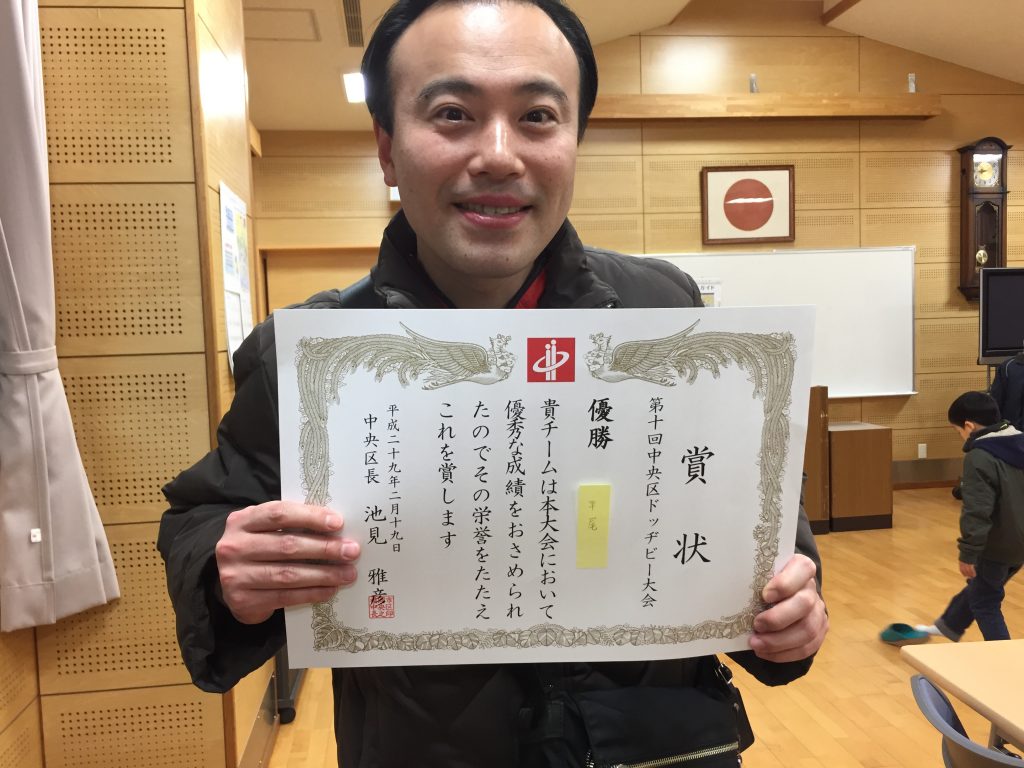 賞状
第十回中央区ドッヂビー大会
優勝
平尾
貴チームは本大会において
優秀な成績をおさめられ
たのでその栄誉をたたえ
これを賞します
平成二十九年二月十九日
中央区長 池見 雅彦